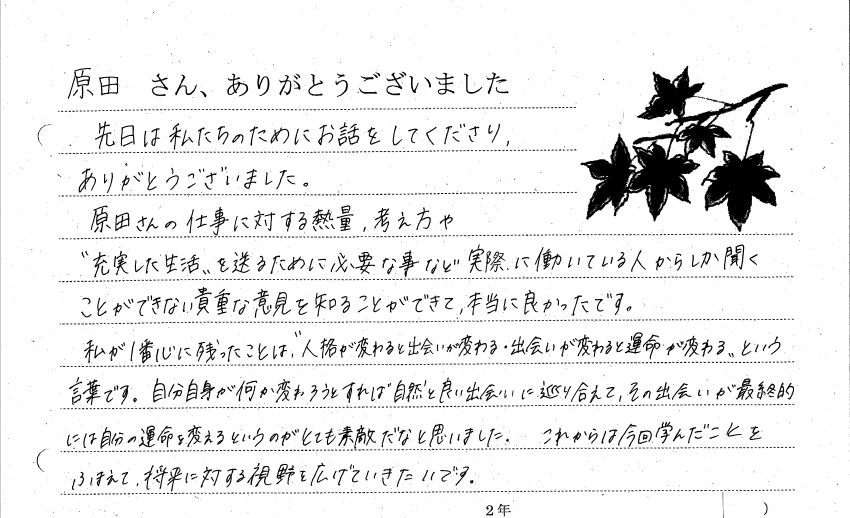 原田 さん、ありがとうございました
先日は私たちのためにお話をしてくださり,
ありがとうございました。
原田さんの仕事に対する熱量,考え方や
"充実した生活"を送るために必要な事など実際に働いている人からしか聞く
ことができない貴重な意見を知ることができて,本当に良かったです。
私が1番心に残ったことは,"人格が変わると出会いが変わる・出会いが変わると運命が変わる"という
言葉です。自分自身が何か変わろうとすれば自然と良い出会いに巡り合えて,その出会いが最終的
には自分の運命を変えるというのがとても素敵だなと思いました. これからは今回学んだことを
ふまえて,将来に対する視野を広げていきたいです。
2年 )